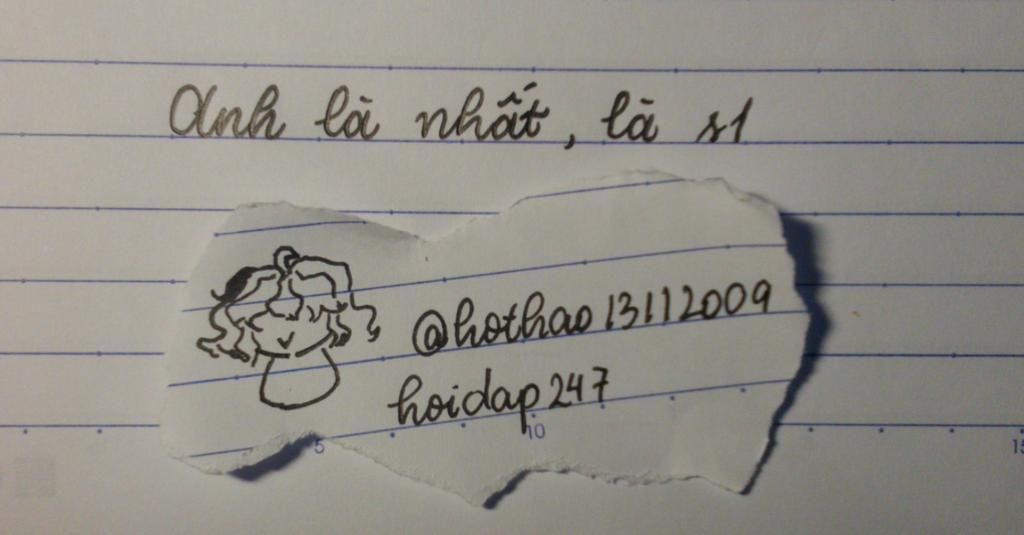 Anh là nhất, là s1
@hothao13112009
hoidap247
5 10 15